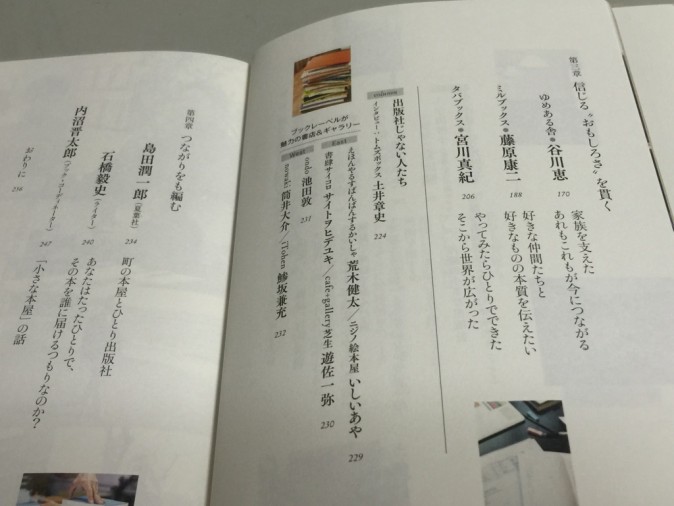 第三章 信じる〝おもしろさ〟を貫く
ゆめある舎●谷川恵 170 家族を支えた
あれもこれもが今につながる
ミルブックス●藤原康二 188 好きな仲間たちと
好きなものの本質を伝えたい
タバブックス●宮川真紀 206 やってみたらひとりでできた
そこから世界が広がった
column 出版社じゃない人たち
インタビュー:トムズボックス 土井章史 224
ブックレーベルが
魅力の書店&ギャラリー
えほんやるすばんばんするかいしゃ 荒木健太/ニジノ絵本屋 いしいあや 229
East
書肆サイコロ サイトヲヒデユキ/cafe+gallery芝生 遊佐一弥 230
ondo 池田敦 231
West
nowaki 筒井大介/iTohen 鯵坂兼充 232
第四章 つながりをも編む
島田潤一郎(夏葉社) 234 町の本屋とひとり出版社
石橋毅史(ライター) 240 あなたはたったひとりで、
その本を誰に届けるつもりなのか?
内沼晋太郎(ブック・コーディネーター) 247 「小さな本屋」の話
おわりに